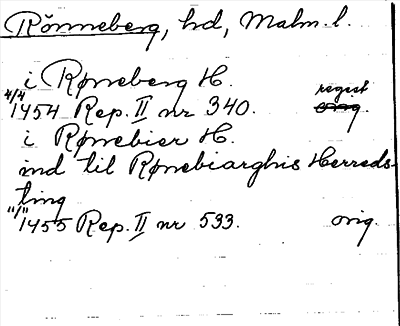 Rönneberg, hd, Malm. l.
i Røneberg H.
4/4 1454 Rep. II nr 340. regist
i Rønebier H.
ind til Rønebiarghis Herreds-
ting
11/11 1455 Rep. II nr 533. orig.